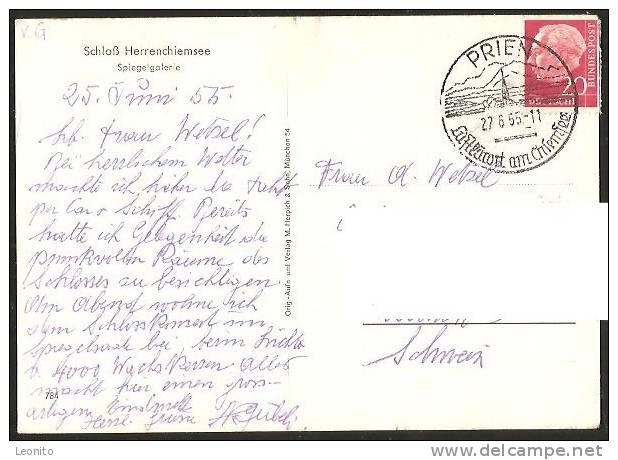 V.G
Schloß Herrenchiemsee
Spiegelgalerie
25. Juni 55.
Lb. Frau Wetzel!
Bei herrlichem Wetter
machte ich hieher die Fahrt
per Car & Schiff. Bereits
hatte ich Gelegenheit die
prunkvollen Räume des
Schlosses zu besichtigen.
Am Abend wohne ich
dem Schlosskonzert im
Spiegelsaale bei, beim Lichte
v. 4000 Wachskerzen. Alles
macht hier einen gross-
artigen Eindruck
Herzl. Grüsse
784
Orig.-Aufn. und Verlag M. Herpich & Sohn, München 54
PRIEN
27.6.55-11
Luftkurort am Chiemsee
20
BUNDESPOST
Frau A. Wetzel
Schweiz
Leonito
www.delcampe.net